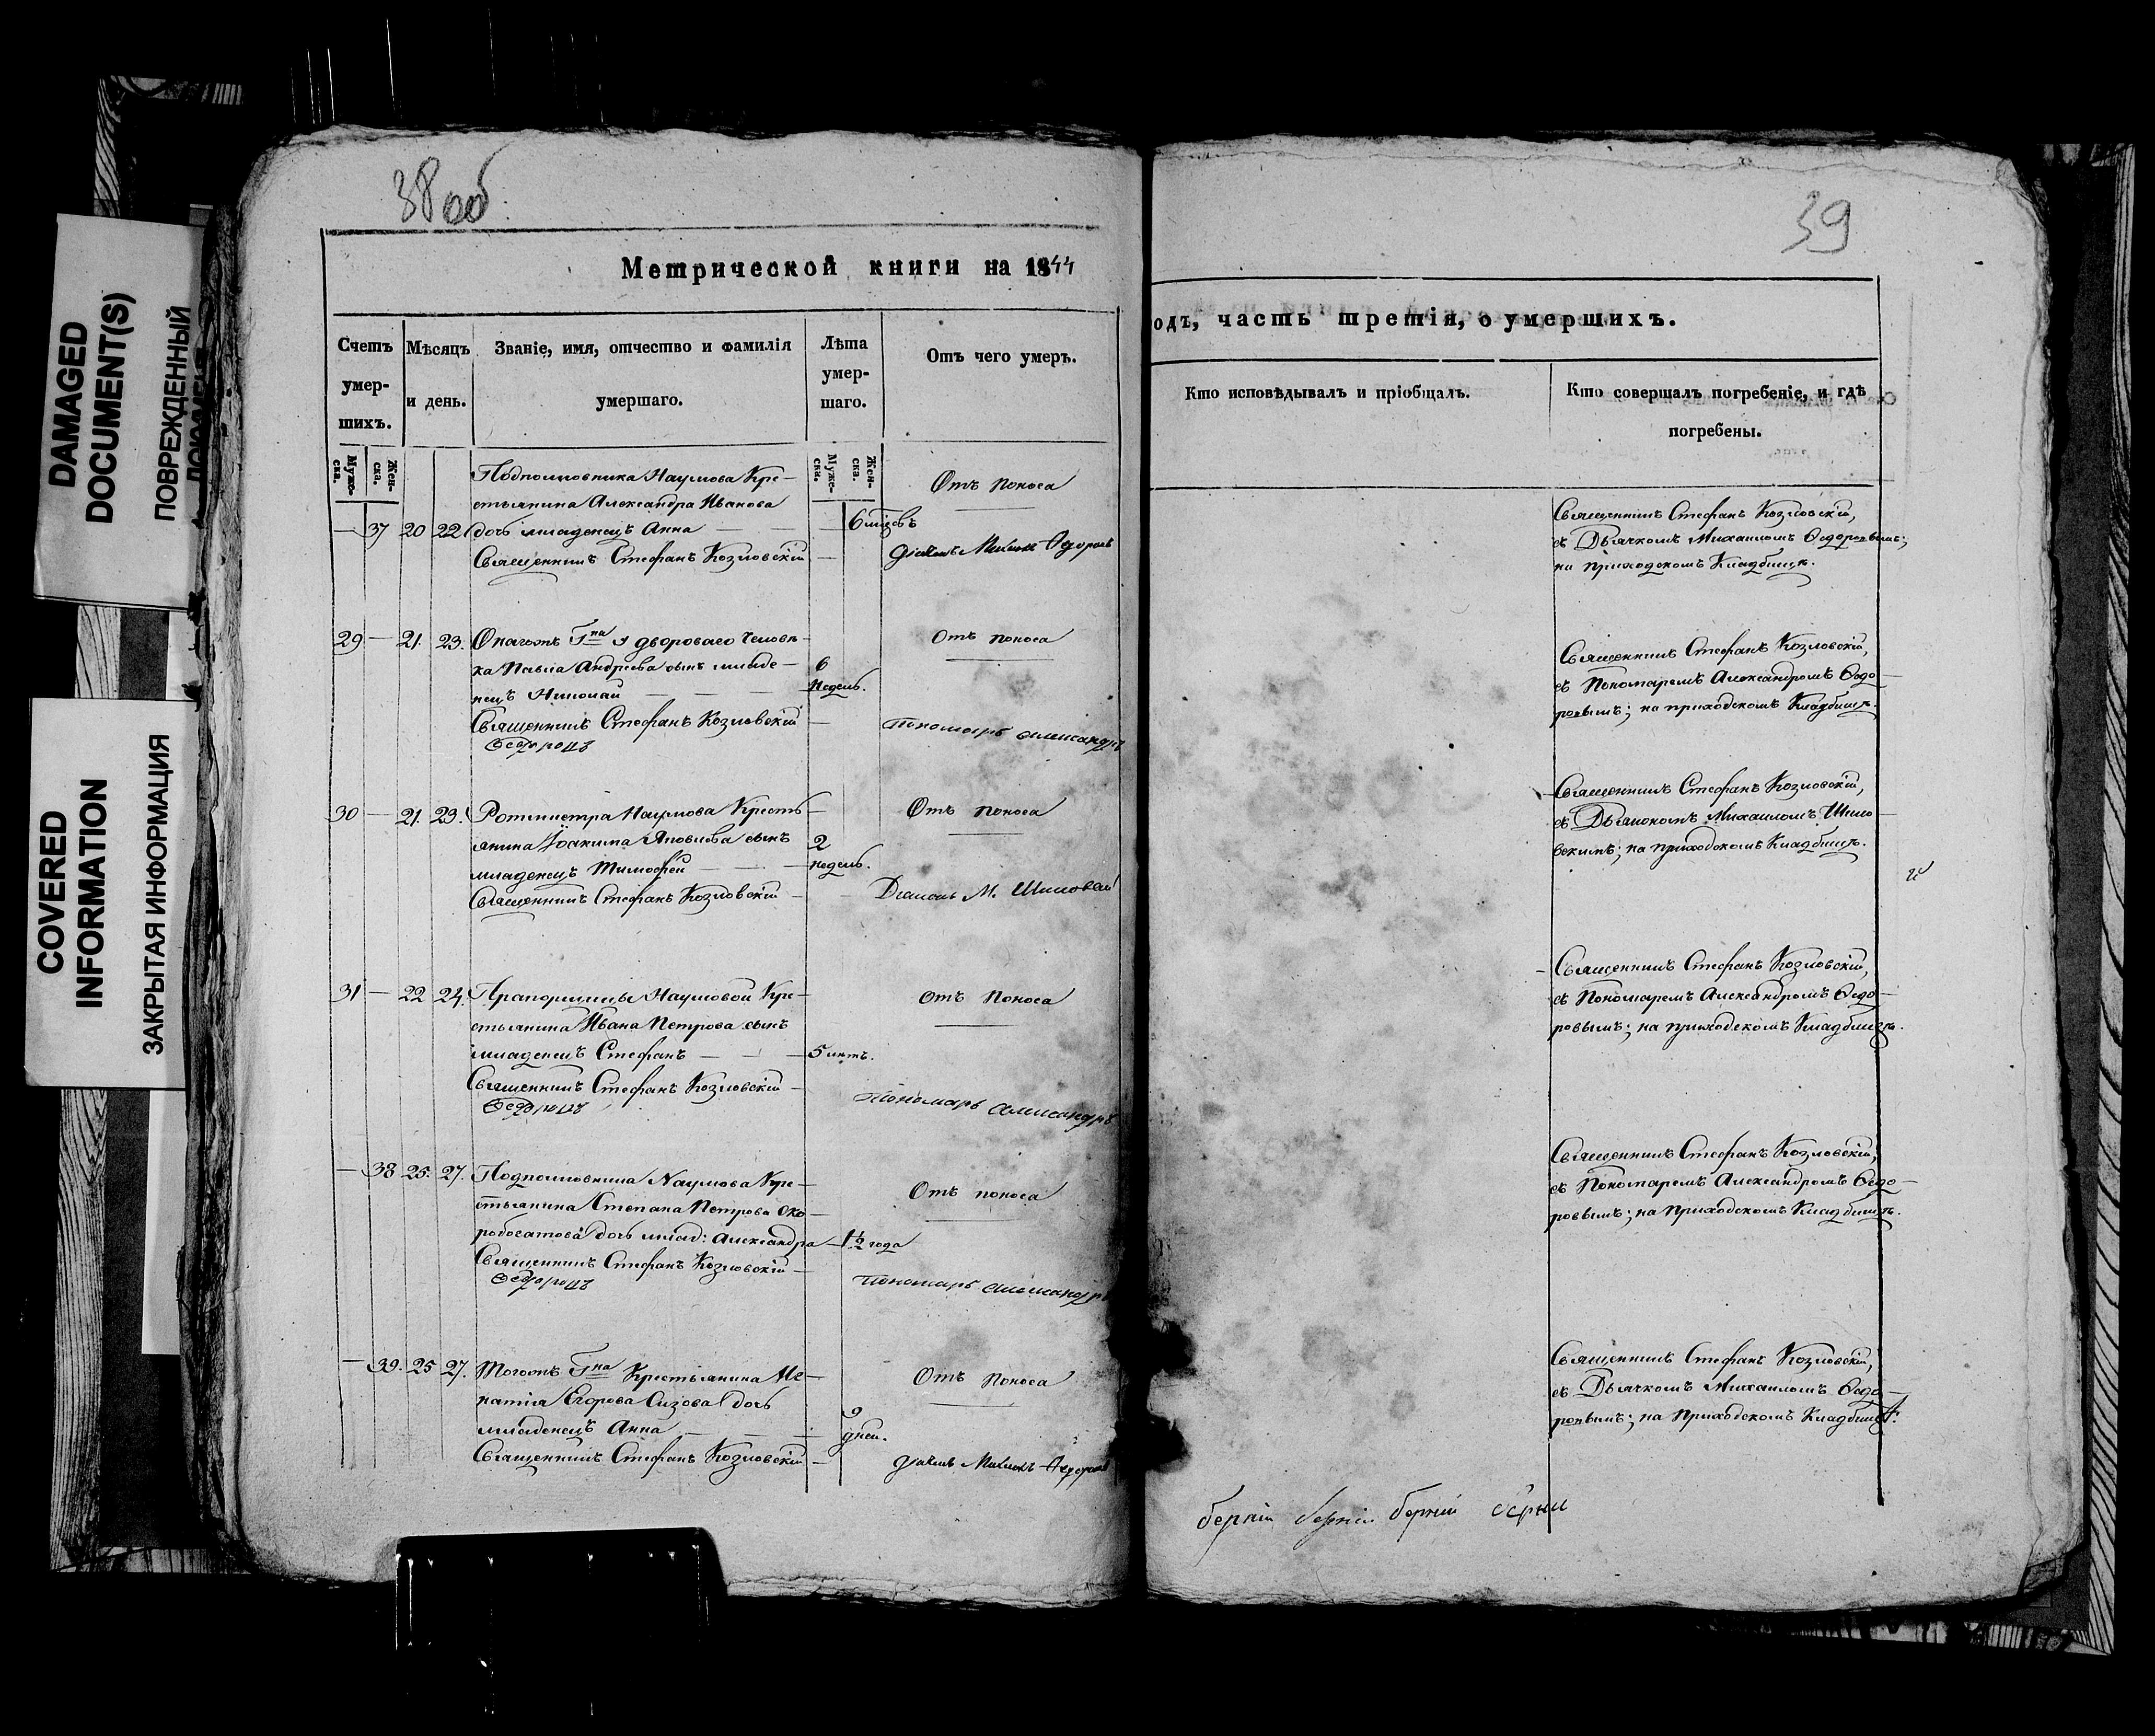 38 об.
39
DAMAGED
DOCUMENT(S)
ПОВРЕЖДЕННЫЙ
COVERED
INFORMATION
ЗАКРЫТАЯ ИНФОРМАЦИЯ
Метрической книги на 1844
одъ, часть третія, о умершихъ.
Счетъ умер-шихъ.
Мѣсяцъ и день.
Званіе, имя, отчество и фамилія умершаго.
Лѣта умер-шаго.
Отъ чего умеръ.
Кто исповѣдывалъ и пріобщалъ.
Кто совершалъ погребеніе, и гдѣ погребены.
Муже-ска.
Жен-ска.
Муже-ска.
Жен-ска.
Подполковника Наумова Кре-
стьянина Александра Иванова
— 37 20 22 дочь младенецъ Анна — 6 мѣсяцевъ
Отъ поноса
Священникъ Стефанъ Козловскій
Дьячекъ Михаилъ Ѳедоровъ
Священникъ Стефанъ Козловскій,
съ Дьячкомъ Михаиломъ Ѳедоровымъ;
на приходскомъ Кладбищѣ.
29 — 21. 23. Онагожъ Гна двороваго Человѣ-
ка Павла Андреева сынъ младе-
нецъ Николай — 6 недель.
Отъ поноса
Священникъ Стефанъ Козловскій
Пономарь Александръ
Ѳедоровъ
Священникъ Стефанъ Козловскій,
съ Пономаремъ Александромъ Ѳедо-
ровымъ; на приходскомъ Кладбищѣ.
30 — 21. 23. Ротмистра Наумова Кресть-
янина Іоакима Яковлева сынъ
младенецъ Тимофей — 2 недель.
Отъ поноса
Священникъ Стефанъ Козловскій
Діаконъ М. Шиловскій
Священникъ Стефанъ Козловскій,
съ Дьякономъ Михаиломъ Шило-
вскимъ; на приходскомъ Кладбищѣ.
31 — 22 24. Прапорщицы Наумовой Кре-
стьянина Ивана Петрова сынъ
младенецъ Стефанъ — 5 лѣтъ.
Отъ поноса
Священникъ Стефанъ Козловскій
Пономарь Александръ
Ѳедоровъ
Священникъ Стефанъ Козловскій,
съ Пономаремъ Александромъ Ѳедо-
ровымъ; на приходскомъ Кладбищѣ.
— 38 25. 27. Подполковника Наумова Кре-
стьянина Степана Петрова Ско-
робогатова дочь млад: Александра — 1½ года
Отъ поноса
Священникъ Стефанъ Козловскій
Пономарь Александръ
Ѳедоровъ
Священникъ Стефанъ Козловскій,
съ Пономаремъ Александромъ Ѳедо-
ровымъ; на Приходскомъ Кладбищѣ.
— 39. 25 27. Тогожъ Гна Крестьянина Иг-
натія Егорова Сизова дочь
младенецъ Анна — 9 дней.
Отъ поноса
Священникъ Стефанъ Козловскій
Дьячекъ Михаилъ Ѳедоровъ
Священникъ Стефанъ Козловскій,
съ Дьячкомъ Михаиломъ Ѳедо-
ровымъ; на Приходскомъ Кладбищѣ.